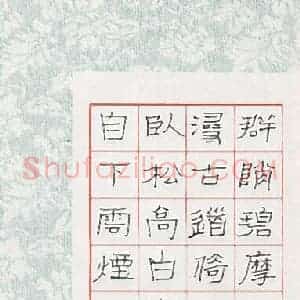 群峭碧摩
尋古道倚
臥松高白
自下雲煙
Shufaziliao.COM